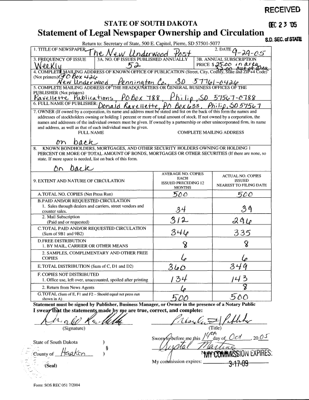 RECEIVED
DEC 23 '05
S.D. SEC. of STATE
STATE OF SOUTH DAKOTA
Statement of Legal Newspaper Ownership and Circulation
Return to: Secretary of State, 500 E. Capitol, Pierre, SD 57501-5077
1. TITLE OF NEWSPAPER The New Underwood Post
2. DATE 9-24-05
3. FREQUENCY OF ISSUE
Weekly
3A. NO. OF ISSUES PUBLISHED ANNUALLY
52
3B. ANNUAL SUBSCRIPTION
PRICE
4. COMPLETE MAILING ADDRESS OF KNOWN OFFICE OF PUBLICATION (Street, City, County, State and Zip+4 Code)
(Not printers) PO Box 426
New Underwood Pennington Co. SD 57761-0426
5. COMPLETE MAILING ADDRESS OF THE HEADQUARTERS OR GENERAL BUSINESS OFFICES OF THE
PUBLISHER (Not printer)
Ravellette Publications PO Box 788 Philip, SD 57567-0788
6. FULL NAME OF PUBLISHER: Donald Ravellette, PO Box 788, Philip, SD 57567
7. OWNER (If owned by a corporation, its name and address must be stated and also immediately thereunder the names and
FULL NAME
COMPLETE MAILING ADDRESS
on back
8. KNOWN BONDHOLDERS, MORTGAGES, AND OTHER SECURITY HOLDERS OWNING OR HOLDING 1
PERCENT OR MORE OF TOTAL AMOUNT OF BONDS, MORTGAGES OR OTHER SECURITIES (If there are none, so
state. If more space is needed, list on back of this form.
on back
9. EXTENT AND NATURE OF CIRCULATION
AVERAGE NO. COPIES
EACH
ISSUED PRECEDING 12
MONTHS
ACTUAL NO. COPIES
ISSUED
NEAREST TO FILING DATE
A. TOTAL NO. COPIES (Net Press Run)
500
500
B. PAID AND/OR REQUESTED CIRCULATION
1. Sales through dealers and carriers, street vendors and
counter sales.
34
39
2. Mail Subscription
(Paid and or requested)
312
296
C. TOTAL PAID AND/OR REQUESTED CIRCULATION
(Sum of 9B1 and 9B2)
346
335
D. FREE DISTRIBUTION
1. BY MAIL, CARRIER OR OTHER MEANS
8
8
2. SAMPLES, COMPLIMENTARY AND OTHER FREE
COPIES
6
6
E. TOTAL DISTRIBUTION (Sum of C, D1 and D2)
360
349
F. COPIES NOT DISTRIBUTED
1. Office use, left over, unaccounted, spoiled after printing
134
143
2. Return from News Agents
6
8
G. TOTAL (Sum of E, F1 and F2 - Should equal net press run
shown in A)
500
500
Statement must be signed by Publisher, Business Manager, or Owner in the presence of a Notary Public
I swear that the statements made by me are true, correct, and complete:
(Signature)
Publisher
(Title)
State of South Dakota )
§
County of Haakon )
Sworn before me this 14th day of Oct 2005
Crystal
(Seal)
My commission expires:
MY COMMISSION EXPIRES:
3-17-09
Form: SOS REC 051 7/2004